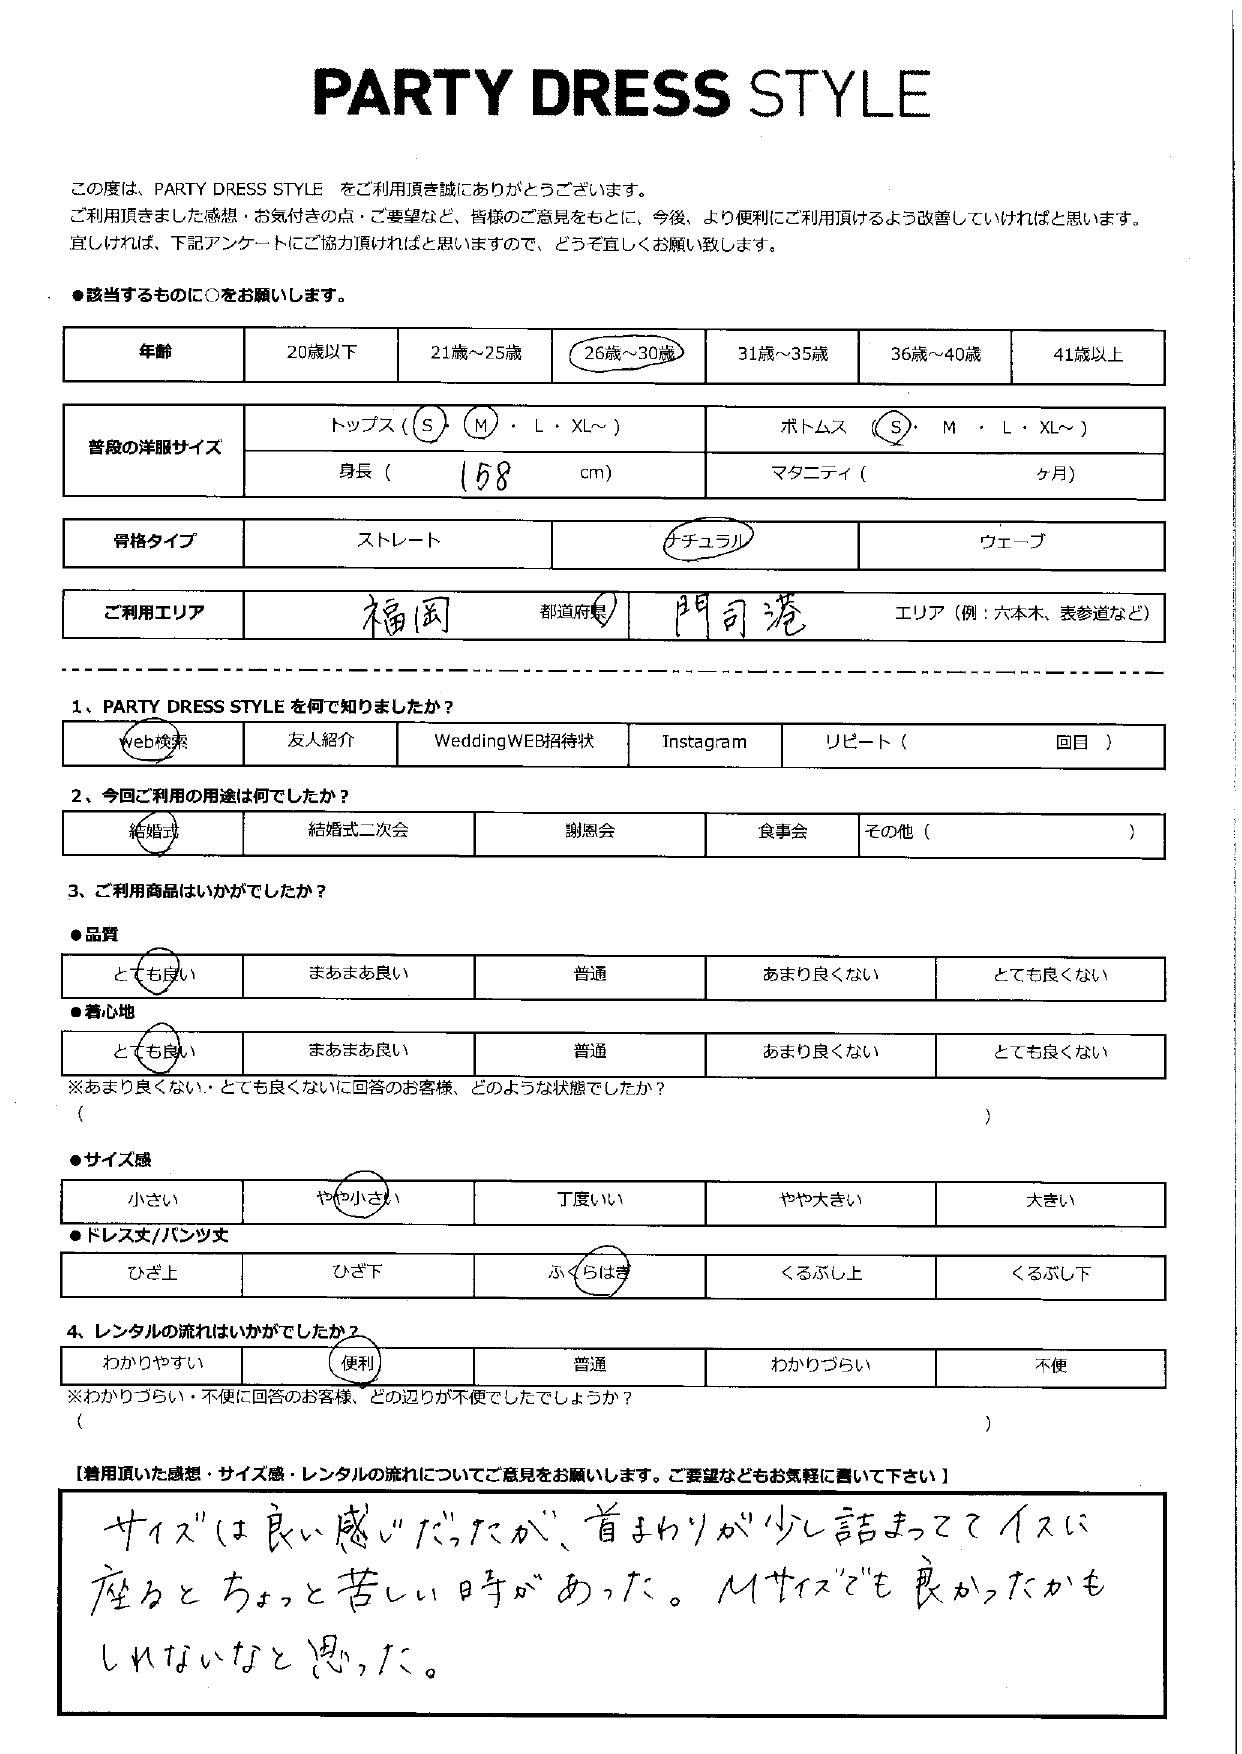 PARTY DRESS STYLE
この度は、PARTY DRESS STYLE をご利用頂き誠にありがとうございます。
ご利用頂きました感想・お気付きの点・ご要望など、皆様のご意見をもとに、今後、より便利にご利用頂けるよう改善していければと思います。
宜しければ、下記アンケートにご協力頂ければと思いますので、どうぞ宜しくお願い致します。
●該当するものに○をお願いします。
年齢 20歳以下 21歳～25歳 26歳～30歳 31歳～35歳 36歳～40歳 41歳以上
普段の洋服サイズ トップス ( S ・ M ・ L ・ XL～ ) ボトムス ( S ・ M ・ L ・ XL～ )
身長 ( 158 cm) マタニティ ( ヶ月)
骨格タイプ ストレート ナチュラル ウェーブ
ご利用エリア 福岡 都道府県 門司港 エリア（例：六本木、表参道など）
1、PARTY DRESS STYLE を何で知りましたか？
web検索 友人紹介 WeddingWEB招待状 Instagram リピート ( 回目 )
2、今回ご利用の用途は何でしたか？
結婚式 結婚式二次会 謝恩会 食事会 その他 ( )
3、ご利用商品はいかがでしたか？
●品質
とても良い まあまあ良い 普通 あまり良くない とても良くない
●着心地
とても良い まあまあ良い 普通 あまり良くない とても良くない
※あまり良くない・とても良くないに回答のお客様、どのような状態でしたか？
( )
●サイズ感
小さい やや小さい 丁度いい やや大きい 大きい
●ドレス丈/パンツ丈
ひざ上 ひざ下 ふくらはぎ くるぶし上 くるぶし下
4、レンタルの流れはいかがでしたか？
わかりやすい 便利 普通 わかりづらい 不便
※わかりづらい・不便に回答のお客様、どの辺りが不便でしたでしょうか？
( )
【着用頂いた感想・サイズ感・レンタルの流れについてご意見をお願いします。ご要望などもお気軽に書いて下さい】
サイズは良い感じだったが、首まわりが少し詰まっててイスに
座るとちょっと苦しい時があった。Mサイズでも良かったかも
しれないなと思った。